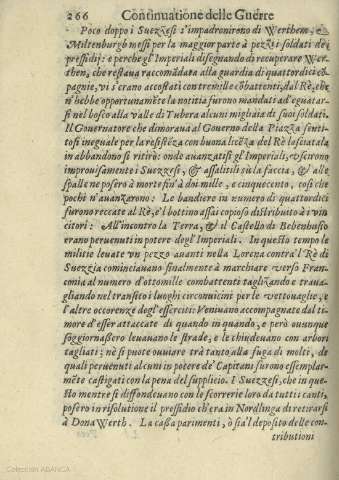 266 Continuatione delle Guerre
Poco doppo i Suezzesi s'impadronirono di Werthem, e
Miltenburgh messi per la maggior parte à pezzi i soldati de i
pressidij: e perche gl'Imperiali disegnando di recuperare Wer-
them, che restaua raccomãdata alla guardia di quattordici cõ-
pagnie, vi s'erano accostati con tremille cõbattenti, dal Rè, che
n'hebbe opportunamẽte la notitia furono mandati ad eguatar-
si nel bosco alla valle di Tubera alcuni migliaia di suoi soldati.
Il Gouernatore che dimoraua al Gouerno della Piazza senti-
tosi ineguale per la resistẽza con buona licẽza del Rè lasciatala
in abbandono si ritirò: onde auanzatisi gl'Imperiali, vscirono
improuisamente i Suezzesi, & assalitili sù la faccia, & alle
spalle ne posero à morte fin'à doi mille, e cinquecento, così che
pochi n'auanzarono: Le bandiere in numero di quattordici
furono reccate al Rè, e'l bottino assai coposo distributo à i vin
citori: All'incontro la Terra, & il Castello di Bebenhusio
erano peruenuti in potere degl'Imperiali. In questo tempo le
militie leuate vn pezzo auanti nella Lorena contra'l Rè di
Suezzia cominciauano finalmente à marchiare verso Fran-
conia al numero d'ottomille combattenti taglizando e traua-
gliando nel transito i luoghi circonuicini per le vettouaglie, e
l'altre occorenze degl'esserciti: Veniuano accompagnate dal ti-
more d'esser attaccate di quando in quando, e però ouunque
soggiornassero leuauano le strade, e le chiudeuano con arbori
tagliati; nè si puote ouuiare trà tanto alla fuga di molti, de
quali peruenuti alcuni in potere de' Capitani furono essemplar-
mẽte castigati con la pena del supplicio. I Suezzesi, che in que-
sto mentre si diffondeuano con le scorrerie loro da tutti i canti,
posero in risolutione il pressidio ch'era in Nordlinga di retirarsi
à Dona Werth. La cassa parimenti, ò sia'l deposito delle con-
tributioni
Colección ABANCA